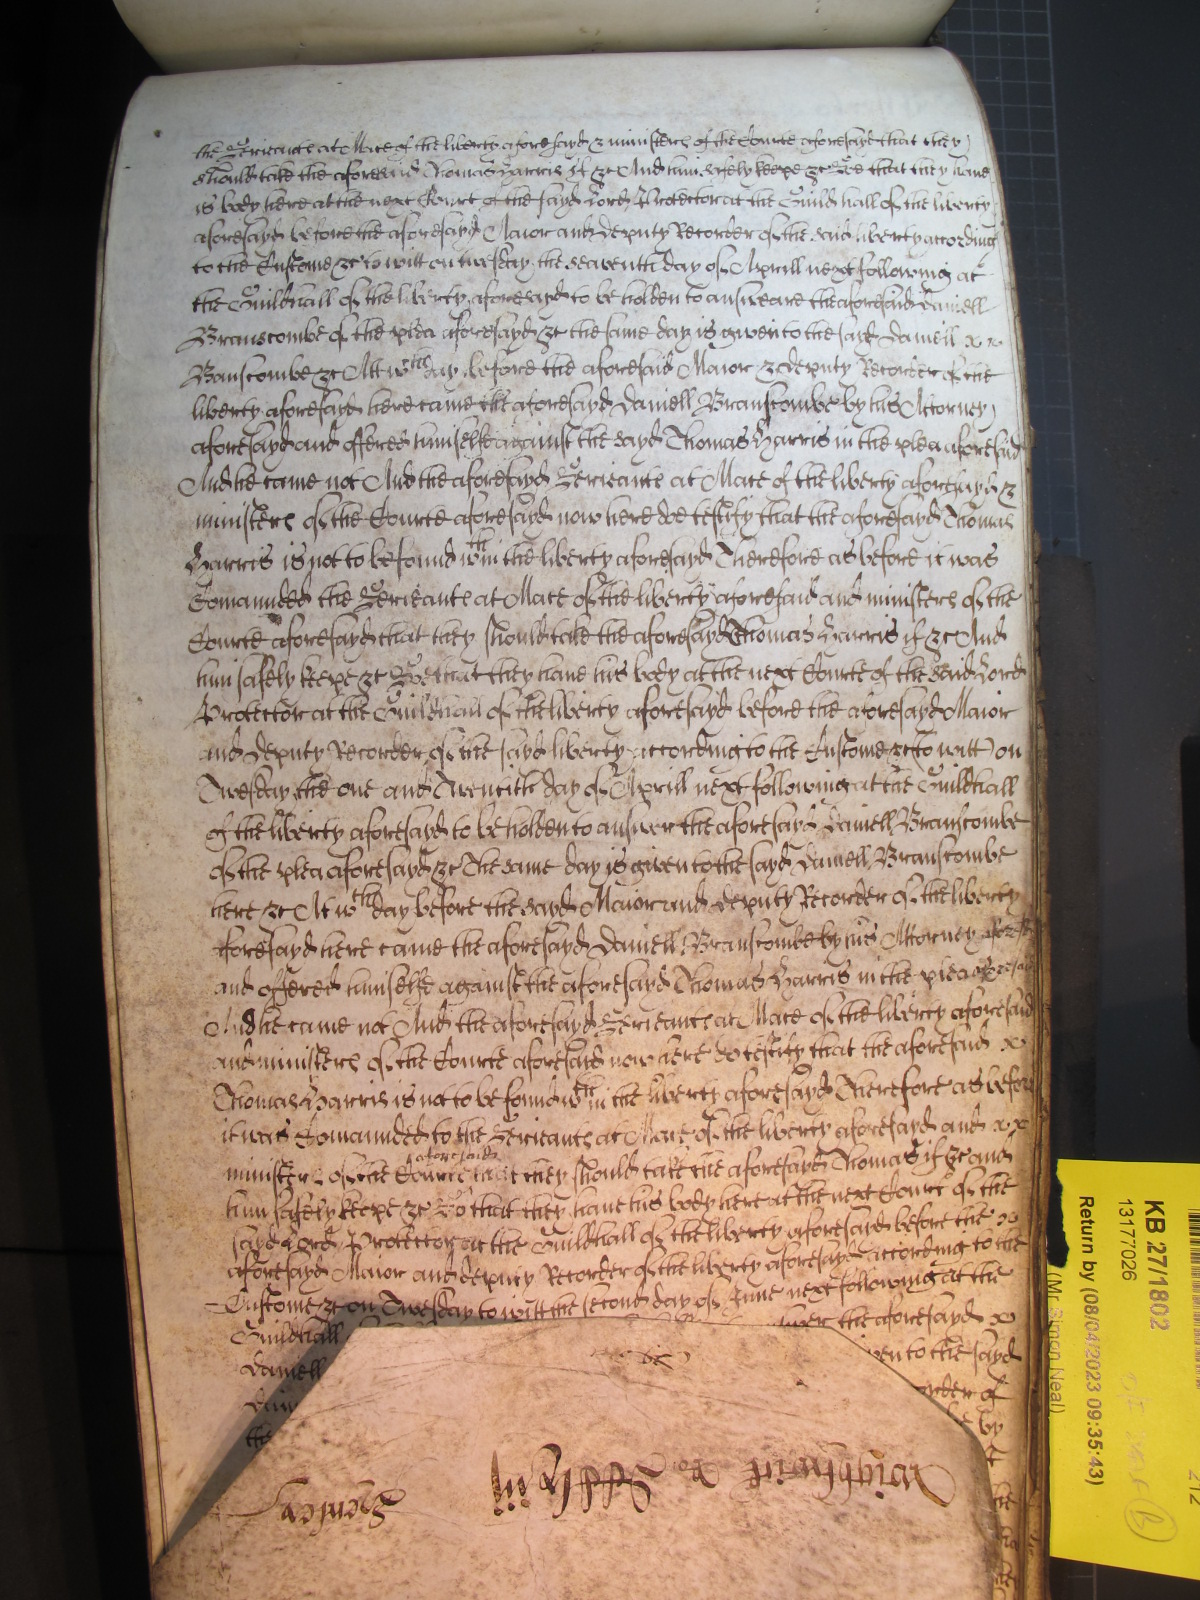 the Serieante at Mace of the liberty aforesayd & ministers of the Courte aforesayd that they
should take the aforesaid Thomas Harris if &c And him safely keepe &c Soe that they have
is body here at the next Court of the sayd Lord Protector at the Guildhall of the liberty
aforesayd before the aforesayd Maior and deputy Recorder of the said liberty according
to the Custome &c to witt on twesday the seaventh day of Aprill next following at
the Guildhall of the liberty aforesayd to be holden to answeare the aforesaid Daniell
Branscombe of the plea aforesayd &c the same day is given to the sayd Daniell x x
Banscombe &c Att wch day before the aforesaid Maior & deputy Recorder of the
liberty aforesayd here came the aforesayd Daniell Branscombe by his Attorney
aforesayd and offered himselfe against the sayd Thomas Harris in the plea aforesaid
And he came not And the aforesayd Serieante at Mace of the liberty aforesayd &
ministers of the Courte aforesayd now here doe testify that the aforesayd Thomas
Harris is not to be found wthin the liberty aforesayd Therefore as before it was
Comaunded the Serieante at Mace of the liberty aforesaid and ministers of the
Courte aforesayd that they should take the aforesayd Thomas Harris if &c And
him safely keepe &c Soe that they have his body at the next Courte of the said Lord
Protector at the Guildhall of the liberty aforesayd before the aforesayd Maior
and deputy Recorder of the sayd liberty according to the Custome &c to witt on
Twesday the one and Twentith day of Aprill next following at the Guildhall
of the liberty aforesayd to be holden to answer the aforesayd Daniell Branscombe
of the plea aforesayd &c The same day is given to the sayd Daniell Branscombe
here &c At wch day before the sayd Maior and deputy Recorder of the liberty
foresayd here came the aforesayd Daniell Branscombe by his Attorney
and offered himselfe against the aforesayd Thomas Harris in the plea aforesaid
And he came not And the aforesayd Serieante at Mace of the liberty aforesaid
and ministers of the Courte aforesaid now here do testify that the aforesaid x
Thomas Harris is not to be found wthin the liberty aforesayd Therefore as before
it was Comaunded to the Serieante at Mace of the liberty aforesayd and x x
ministers of the Courte aforesaid that they should take the aforesayd Thomas if &c and
him safely keepe &c So that they have his body here at the next Court of the
sayd Lord Protector at the Guildhall of the liberty aforesaid before the x
aforesayd Maior and deputy Recorder of the liberty aforesayd according to the
Custome &c on Twesday to witt the second day of June next following at the
Guildhall the aforesayd x
Daniell to the sayd
of
by
the
Wightwick
KB 27/1802
13177026
Return by (08/04/2023 09:35:43)
(Mr. Simon Neal)
212